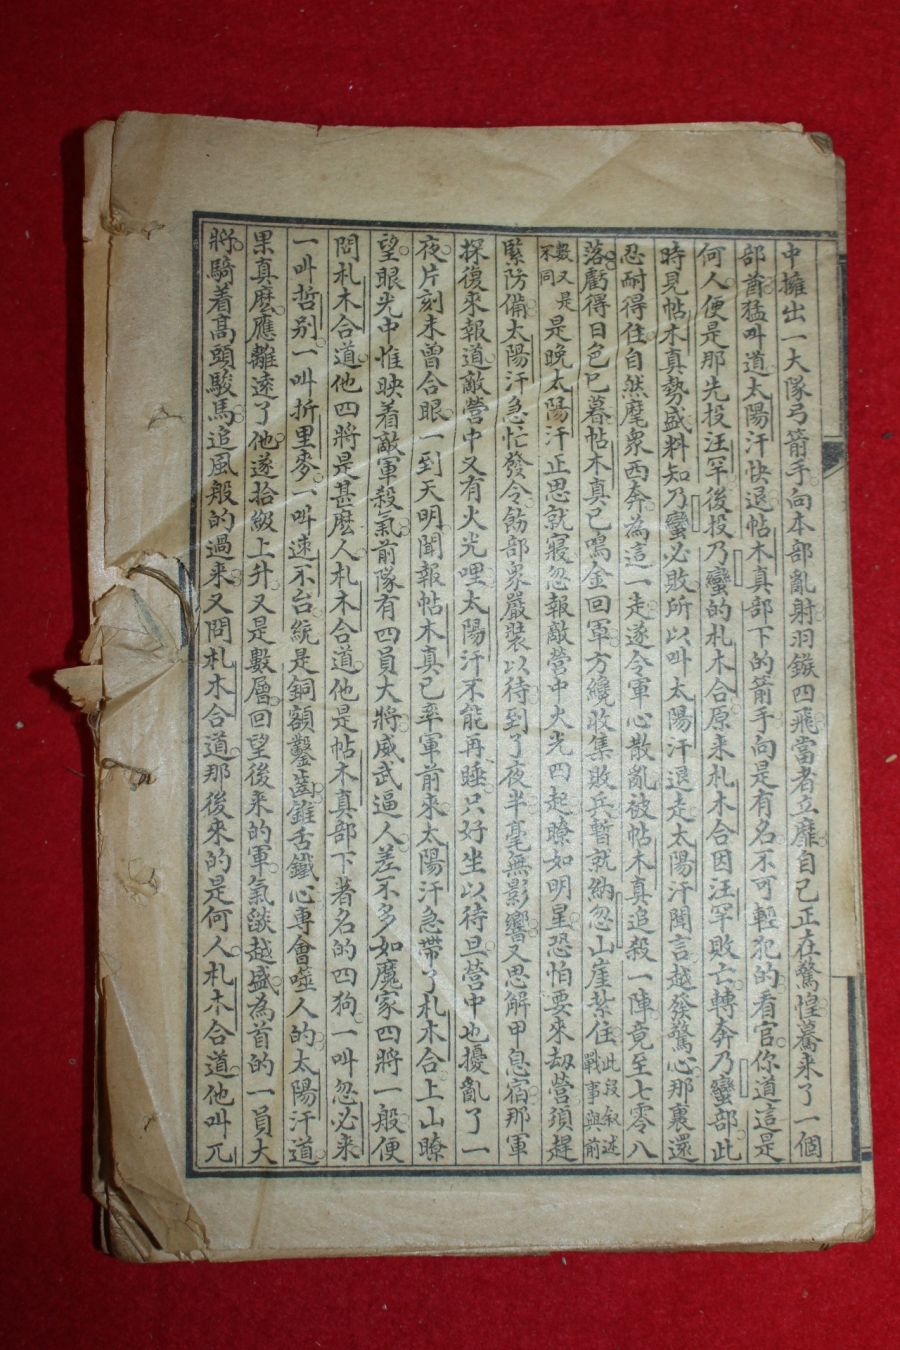 中擁出一大隊弓箭手向本部亂射羽鏃四飛當者立靡自己正在驚惶驀來了一個
部酋猛叫道太陽汗快退帖木真部下的箭手向是有名不可輕犯的看官你道這是
何人便是那先投汪罕後投乃蠻的札木合原來札木合因汪罕敗亡轉奔乃蠻部此
時見帖木真勢盛料知乃蠻必敗所以叫太陽汗退走太陽汗聞言越發驚心那裏還
忍耐得住自然麾衆西奔為這一走遂令軍心散亂被帖木真追殺一陣竟至七零八
落虧得日色已暮帖木真已鳴金回軍方纔收集敗兵暫就納忽山崖紮住此段叙述戰事與前
數又是不同是晚太陽汗正思就寢忽報敵營中火光四起瞭如明星恐怕要來劫營須趕
緊防備太陽汗急忙發令飭部衆嚴裝以待到了夜半毫無影響又思解甲息宿那軍
探復來報道敵營中又有火光哩太陽汗不能再睡只好坐以待旦營中也擾亂了一
夜片刻未曾合眼一到天明聞報帖木真已率軍前來太陽汗急帶了札木合上山瞭
望眼光中惟映着敵軍殺氣前隊有四員大將威武逼人差不多如魔家四將一般便
問札木合道他四將是甚麼人札木合道他是帖木真部下著名的四狗一叫忽必來
一叫哲別一叫折里麥一叫速不台統是銅額鑿齒錐舌鐵心專會噬人的太陽汗道
果真麼應離遠了他遂拾級上升又是數層回望後來的軍氣燄越盛為首的一員大
將騎着高頭駿馬追風般的過來又問札木合道那後來的是何人札木合道他叫兀